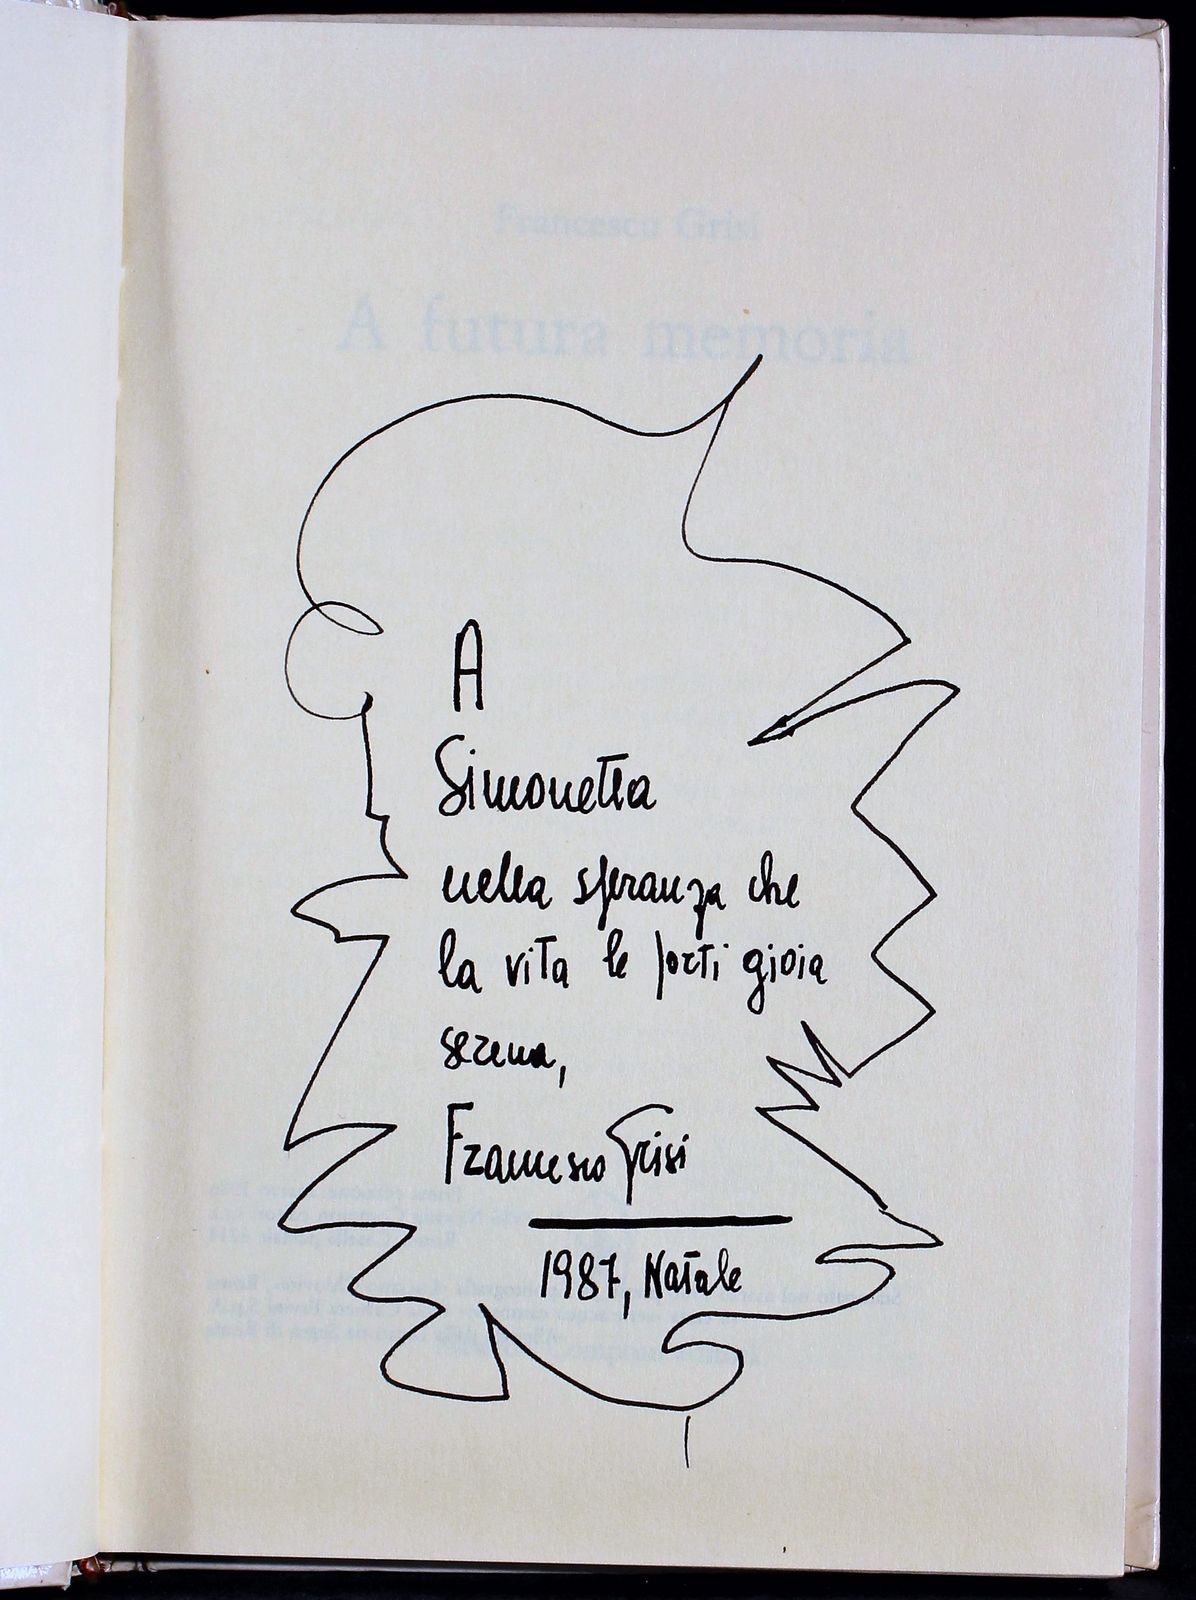 Francesco Grisi
A futura memoria
A
Simonetta
nella speranza che
la vita le porti gioia
serena,
Francesco Grisi
1987, Natale